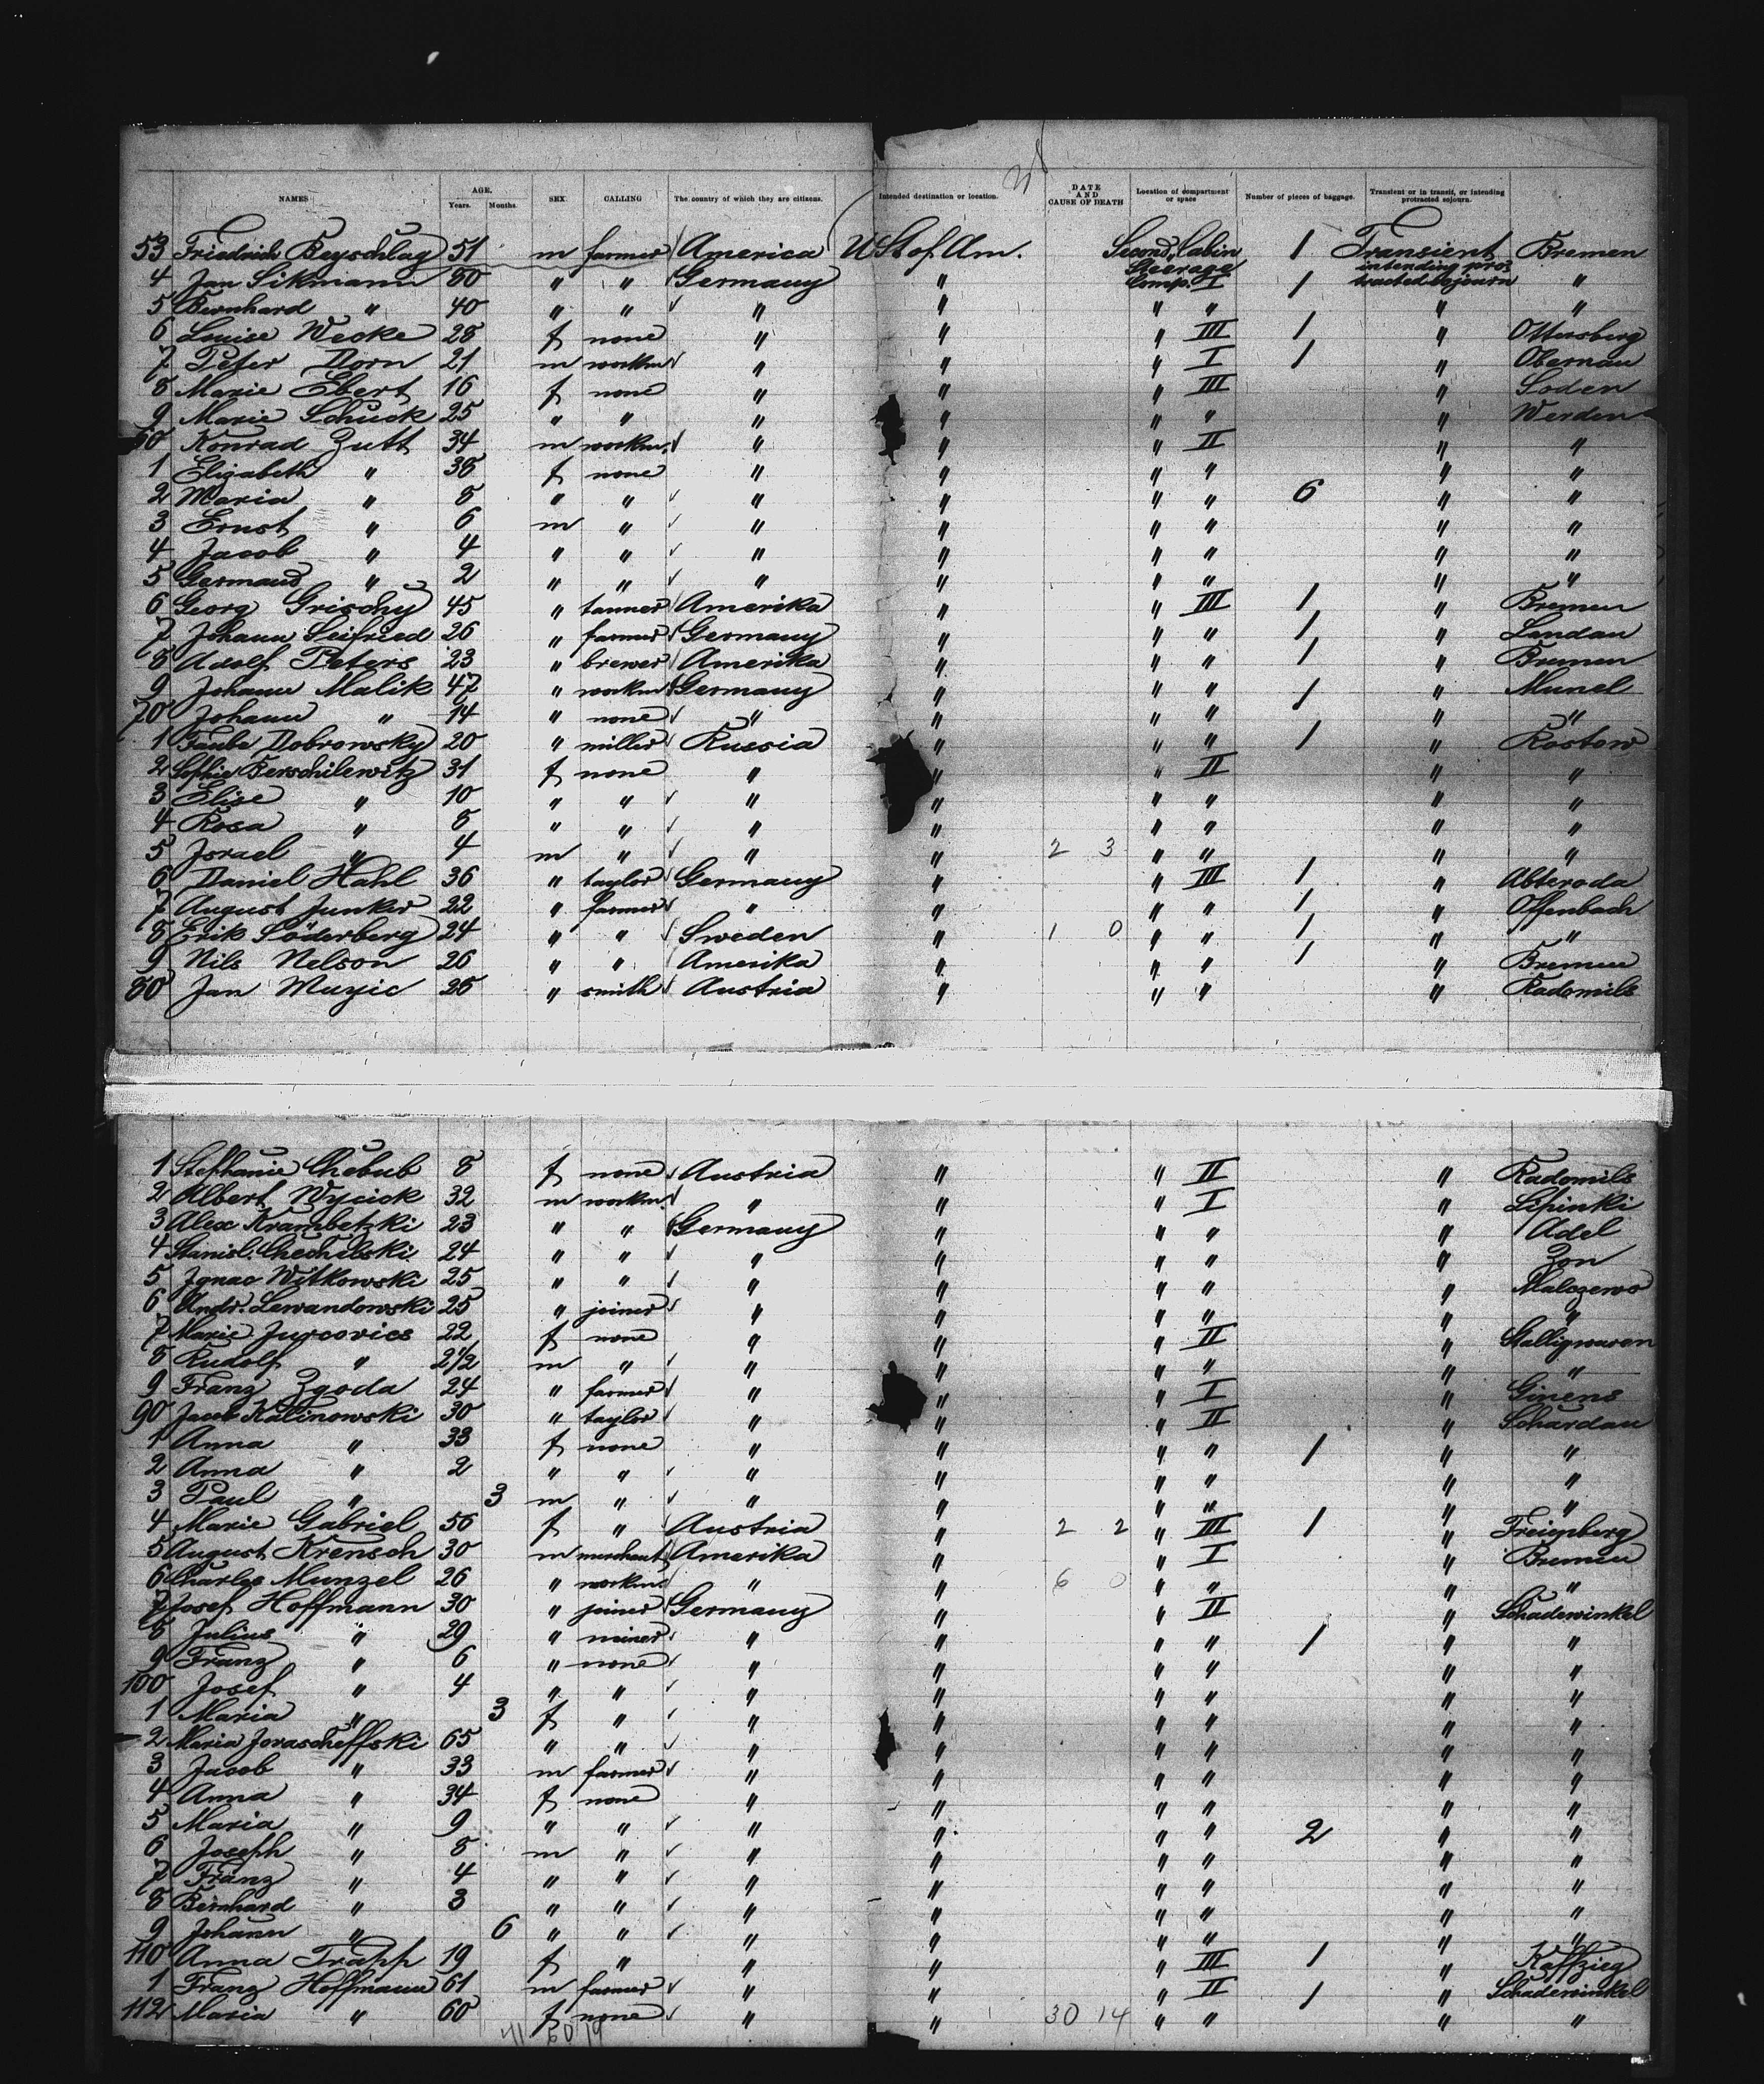 NAMES AGE. Years. Months. SEX. CALLING The country of which they are citizens. Intended destination or location. DATE AND CAUSE OF DEATH Location of compartment or space Number of pieces of baggage. Transient or in transit, or intending protracted sojourn.
53 Friedrich Beyschlag 51 m farmer America U St of Am. Second Cabin 1 Transient Bremen
4 Jan Sikmann 50 " " Germany " Steerage Comp. I 1 intending protracted sojourn "
5 Bernhard " 40 " " " " " " " "
6 Louise Wecke 28 f none " " " III 1 " Ottersberg
7 Peter Dorn 21 m workm " " " I 1 " Obernau
8 Marie Ebert 16 f none " " " III " Soden
9 Marie Schuck 25 " " " " " " " Werden
60 Konrad Zutt 34 m workm. " " " II " "
1 Elizabeth " 38 f none " " " " " "
2 Maria " 8 " " " " " " 6 " "
3 Ernst " 6 m " " " " " " "
4 Jacob " 4 " " " " " " " "
5 Germand " 2 " " " " " " " "
6 Georg Grischy 45 " tanner Amerika " " III 1 " Bremen
7 Johann Seifried 26 " farmer Germany " " " 1 " Landau
8 Adolf Peters 23 " brewer Amerika " " " 1 " Bremen
9 Johann Malik 47 " workm Germany " " " 1 " Munel
70 Johann " 14 " none " " " " " "
1 Taube Dobrowsky 20 " miller Russia " " " 1 " Rostow
2 Sophie Berschilewitz 31 f none " " " II " "
3 Elise " 10 " " " " " " " "
4 Rosa " 8 " " " " " " " "
5 Israel " 4 m " " " 2 3 " " " "
6 Daniel Hahl 36 " taylor Germany " " III 1 " Abteroda
7 August Junker 22 " farmer " " " " 1 " Offenbach
8 Erik Söderberg 24 " " Sweden " 1 0 " " 1 " "
9 Nils Nelson 26 " " Amerika " " " 1 " Bremen
80 Jan Muzic 25 " smith Austria " " " " Radomils
1 Stephanie Chebub 8 f none Austria " " II " Radomils
2 Albert Wycick 32 m workm. " " " I " Lipinki
3 Alex Krambetzki 23 " " Germany " " " " Adel
4 Stanisl. Chechilski 24 " " " " " " " Zon
5 Ignac Witkowski 25 " " " " " " " Malczewo
6 Andr. Lewandowski 25 " joiner " " " " " "
7 Marie Jurcovics 22 f none " " " II " Stalligwaren
8 Rudolf " 2 1/2 m " " " " " " "
9 Franz Zgoda 24 " farmer " " " I " Ginens
90 Jacob Kalinowski 30 " taylor " " " II " Schardau
1 Anna " 33 f none " " " " 1 " "
2 Anna " 2 " " " " " " " "
3 Paul " 3 m " " " " " " "
4 Marie Gabriel 56 f " Austria " 2 2 " III 1 " Freienberg
5 August Krensch 30 m merchant Amerika " " I " Bremen
6 Charles Munzel 26 " workm. " " 6 0 " " " "
7 Josef Hoffmann 30 " joiner Germany " " II " Schadewinkel
8 Julius " 29 " miner " " " " 1 " "
9 Franz " 6 " none " " " " " "
100 Josef " 4 " " " " " " " "
1 Maria " 3 f " " " " " " "
2 Maria Jorascheffski 65 " " " " " " " "
3 Jacob " 33 m farmer " " " " " "
4 Anna " 34 f none " " " " " "
5 Maria " 9 " " " " " " 2 " "
6 Joseph " 8 m " " " " " " "
7 Franz " 4 " " " " " " " "
8 Bernhard " 3 " " " " " " " "
9 Johann " 6 " " " " " " " "
110 Anna Trapp 19 f " " " " III 1 " Kaffzieg
1 Franz Hoffmann 61 m farmer " " " II 1 " Schadewinkel
112 Maria " 60 f none " " 30 14 " " " "